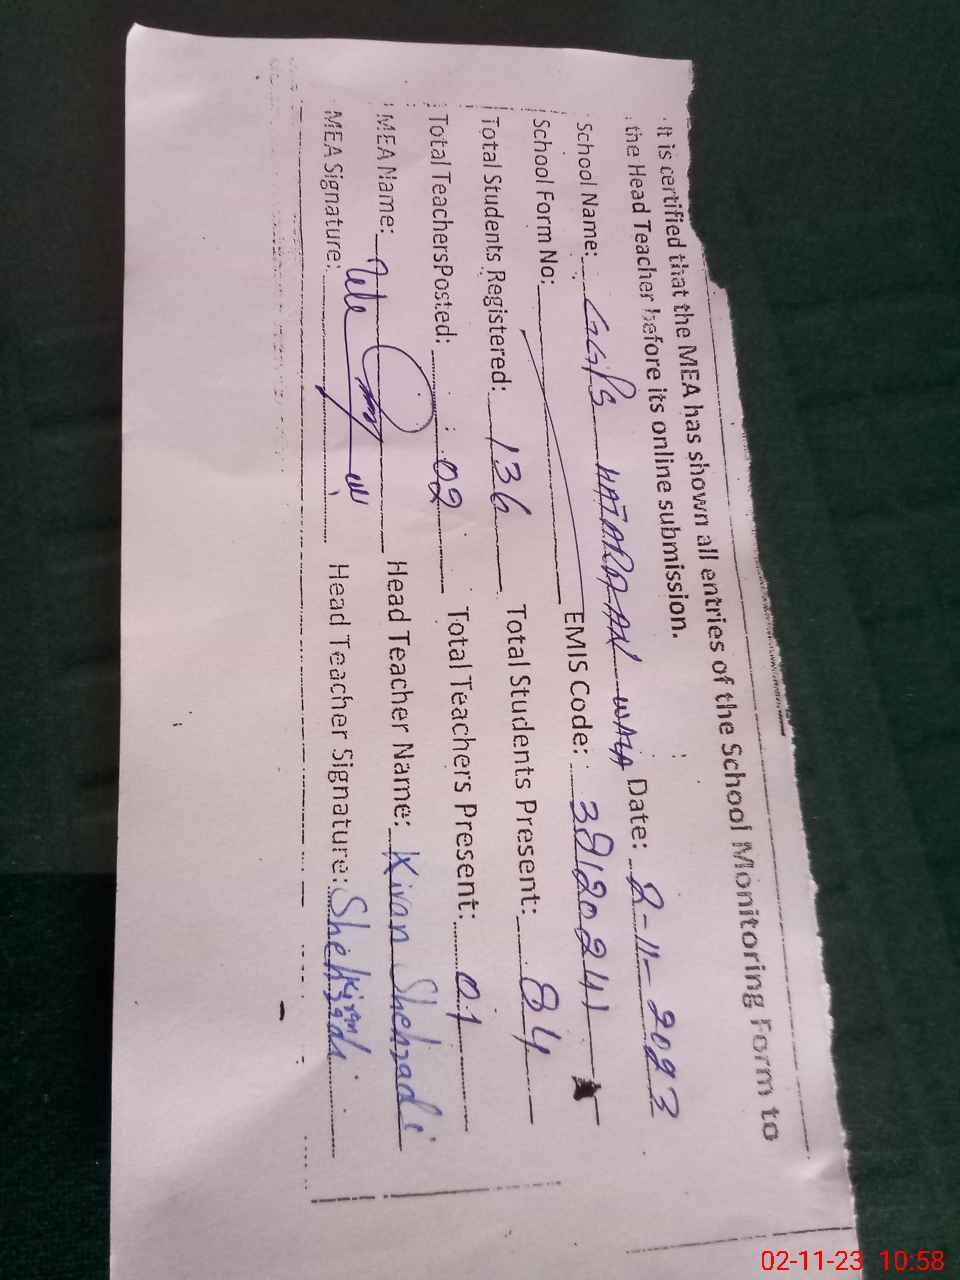 It is certified that the MEA has shown all entries of the School Monitoring Form to
the Head Teacher before its online submission.
School Name: GGPS WALA Date: 2-11-2023
School Form No: EMIS Code: 38120241
Total Students Registered: 136 Total Students Present: 84
Total TeachersPosted: 02 Total Teachers Present: 01
MEA Name: Head Teacher Name: Kiran Shehzadi
MEA Signature: Head Teacher Signature: Kiran Shehzadi
02-11-23 10:58